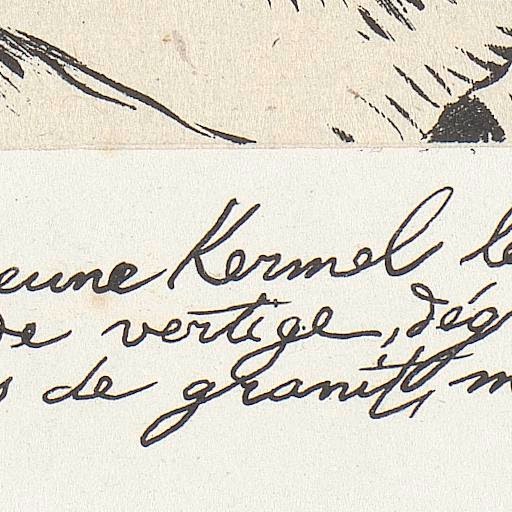 eune Kermel le
de vertige, dég
s de granit, m